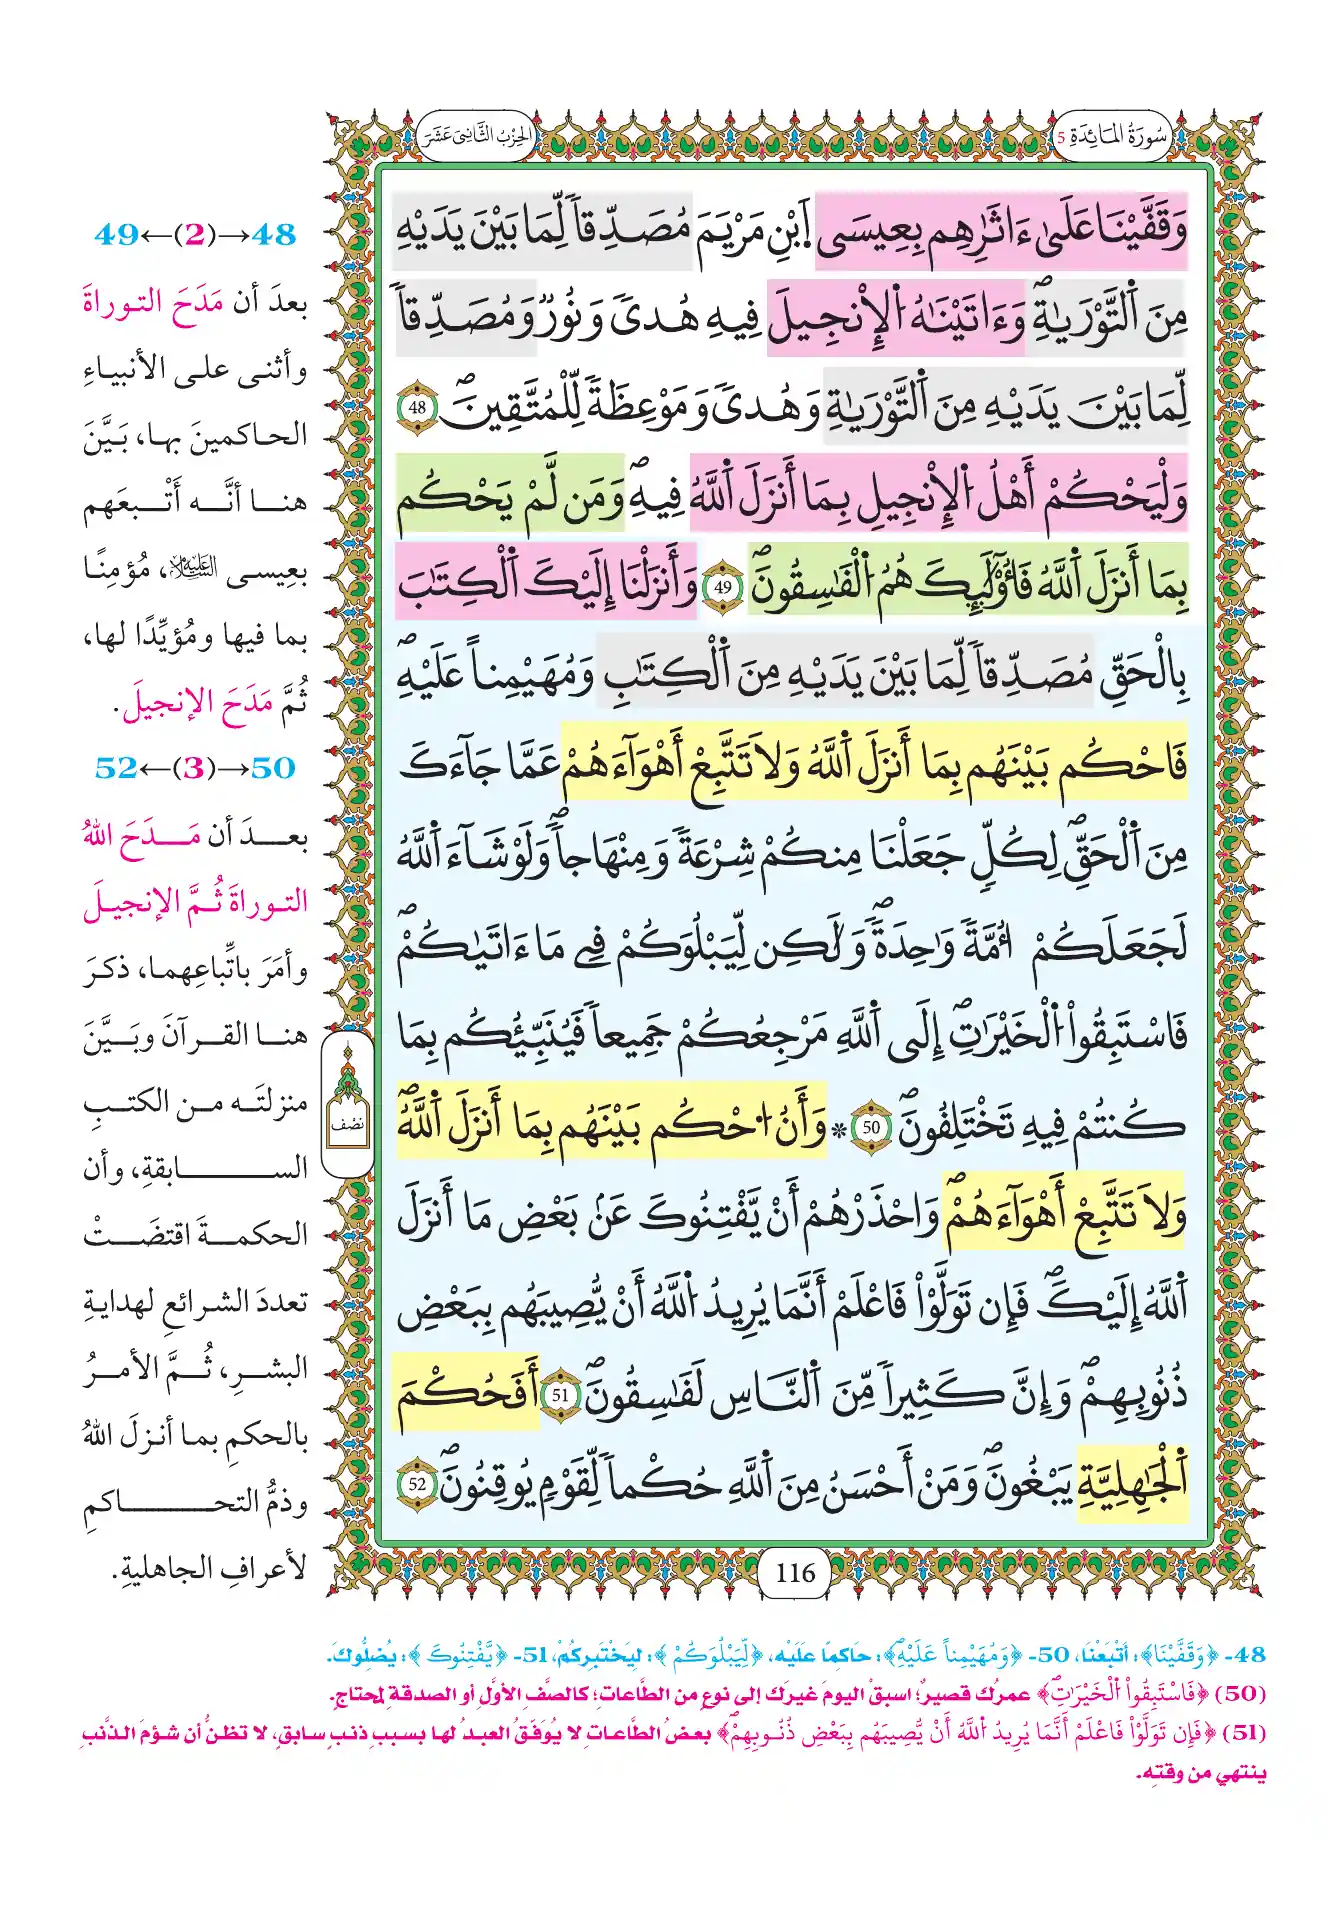 سُورَةُ المَائِدَةِ 5
الحِزْبُ الثَّانِي عَشَرَ
وَقَفَّيْنَا عَلَىٰ ءَاثَٰرِهِم بِعِيسَى اَبْنِ مَرْيَمَ مُصَدِّقاٗ لِّمَا بَيْنَ يَدَيْهِ
مِنَ اَلتَّوْرَىٰةِۖ وَءَاتَيْنَٰهُ اُلْإِنْجِيلَ فِيهِ هُدىٗ وَنُورٞ وَمُصَدِّقاٗ
لِّمَا بَيْنَ يَدَيْهِ مِنَ اَلتَّوْرَىٰةِ وَهُدىٗ وَمَوْعِظَةٗ لِّلْمُتَّقِينَۖ 48
وَلْيَحْكُمْ أَهْلُ اُلْإِنْجِيلِ بِمَا أَنزَلَ اَللَّهُ فِيهِۖ وَمَن لَّمْ يَحْكُم
بِمَا أَنزَلَ اَللَّهُ فَأُوْلَٰٓئِكَ هُمُ اُلْفَٰسِقُونَۖ 49 وَأَنزَلْنَا إِلَيْكَ اَلْكِتَٰبَ
بِالْحَقِّ مُصَدِّقاٗ لِّمَا بَيْنَ يَدَيْهِ مِنَ اَلْكِتَٰبِ وَمُهَيْمِناً عَلَيْهِۖ
فَاحْكُم بَيْنَهُم بِمَا أَنزَلَ اَللَّهُ وَلَا تَتَّبِعْ أَهْوَآءَهُمْ عَمَّا جَآءَكَ
مِنَ اَلْحَقِّۖ لِكُلّٖ جَعَلْنَا مِنكُمْ شِرْعَةٗ وَمِنْهَاجاٗۖ وَلَوْ شَآءَ اَللَّهُ
لَجَعَلَكُمْ أُمَّةٗ وَٰحِدَةٗۖ وَلَٰكِن لِّيَبْلُوَكُمْ فِے مَا ءَاتَيٰكُمْۖ
فَاسْتَبِقُواْ اُلْخَيْرَٰتِۖ إِلَى اَللَّهِ مَرْجِعُكُمْ جَمِيعاٗ فَيُنَبِّئُكُم بِمَا
كُنتُمْ فِيهِ تَخْتَلِفُونَۖ 50 * وَأَنُ اُحْكُم بَيْنَهُم بِمَا أَنزَلَ اَللَّهُۖ
وَلَا تَتَّبِعْ أَهْوَآءَهُمْۖ وَاحْذَرْهُمْ أَنْ يَّفْتِنُوكَ عَنۢ بَعْضِ مَا أَنزَلَ
اَللَّهُ إِلَيْكَۖ فَإِن تَوَلَّوْاْ فَاعْلَمْ أَنَّمَا يُرِيدُ اُللَّهُ أَنْ يُّصِيبَهُم بِبَعْضِ
ذُنُوبِهِمْۖ وَإِنَّ كَثِيراٗ مِّنَ اَلنَّاسِ لَفَٰسِقُونَۖ 51 أَفَحُكْمَ
اَلْجَٰهِلِيَّةِ يَبْغُونَۖ وَمَنْ أَحْسَنُ مِنَ اَللَّهِ حُكْماٗ لِّقَوْمٖ يُوقِنُونَۖ 52
نصف
116
48→(2)←49
بعدَ أن مَدَحَ التوراةَ
وأثنى على الأنبياءِ
الحاكمينَ بها، بَيَّنَ
هنا أنَّه أَتْبعَهم
بعِيسى عليه السلام، مُؤمِنًا
بما فيها ومُؤيِّدًا لها،
ثُمَّ مَدَحَ الإنجيلَ.
50→(3)←52
بعدَ أن مَدَحَ اللهُ
التوراةَ ثُمَّ الإنجيلَ
وأمَرَ باتِّباعِهما، ذكرَ
هنا القرآنَ وبَيَّنَ
منزلتَه من الكتبِ
السابقةِ، وأن
الحكمةَ اقتضَتْ
تعددَ الشرائعِ لهدايةِ
البشرِ، ثُمَّ الأمرُ
بالحكمِ بما أنزلَ اللهُ
وذمُّ التحاكمِ
لأعرافِ الجاهليةِ.
48- ﴿وَقَفَّيْنَا﴾: أتْبَعْنَا، 50- ﴿وَمُهَيْمِناً عَلَيْهِۖ﴾: حَاكِمًا عَلَيْه، ﴿لِّيَبْلُوَكُمْ﴾: لِيَخْتَبِركُمْ، 51- ﴿يَّفْتِنُوكَ﴾: يُضلُّوكَ.
(50) ﴿فَاسْتَبِقُواْ اُلْخَيْرَٰتِۖ﴾ عمرُك قصيرٌ؛ اسبقْ اليومَ غيرَك إلى نوعٍ من الطَّاعات؛ كالصَّف الأوَّل أو الصدقة لمحتاج.
(51) ﴿فَإِن تَوَلَّوْاْ فَاعْلَمْ أَنَّمَا يُرِيدُ اُللَّهُ أَنْ يُّصِيبَهُم بِبَعْضِ ذُنُوبِهِمْۖ﴾ بعضُ الطَّاعاتِ لا يُوَفَّقُ العبدُ لها بسببِ ذنبٍ سابقٍ، لا تظنَّ أن شؤمَ الذَّنبِ
ينتهي من وقتِه.